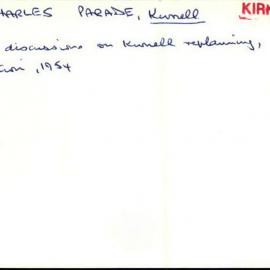 HARLES PARADE, Kurnell KIRN
discussions on Kurnell replanning,
tion, 1954